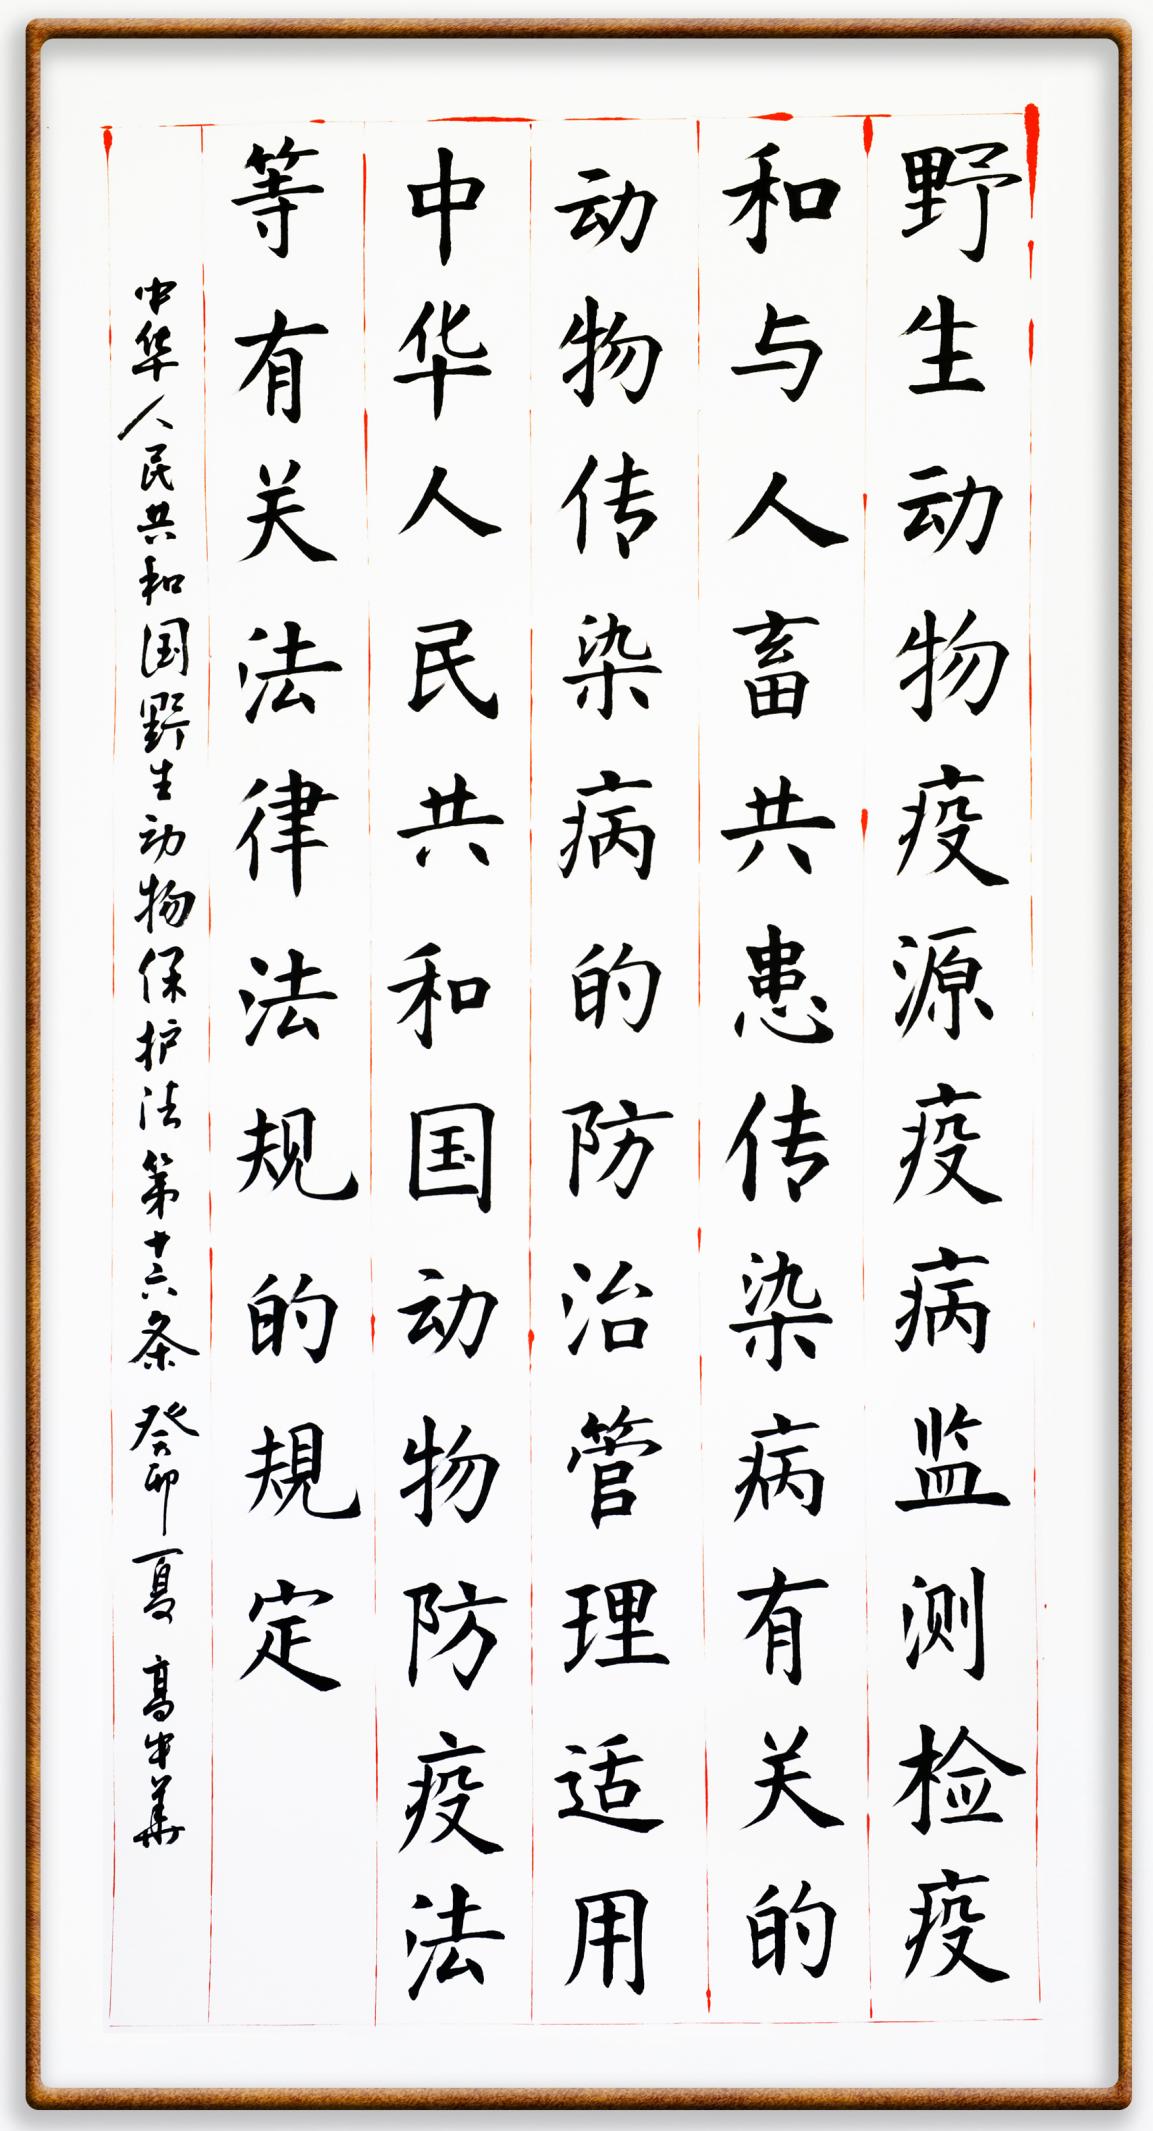 野生动物疫源疫病监测检疫
和与人畜共患传染病有关的
动物传染病的防治管理适用
中华人民共和国动物防疫法
等有关法律法规的規定
中华人民共和国野生动物保护法第十六条 癸卯夏 高中華